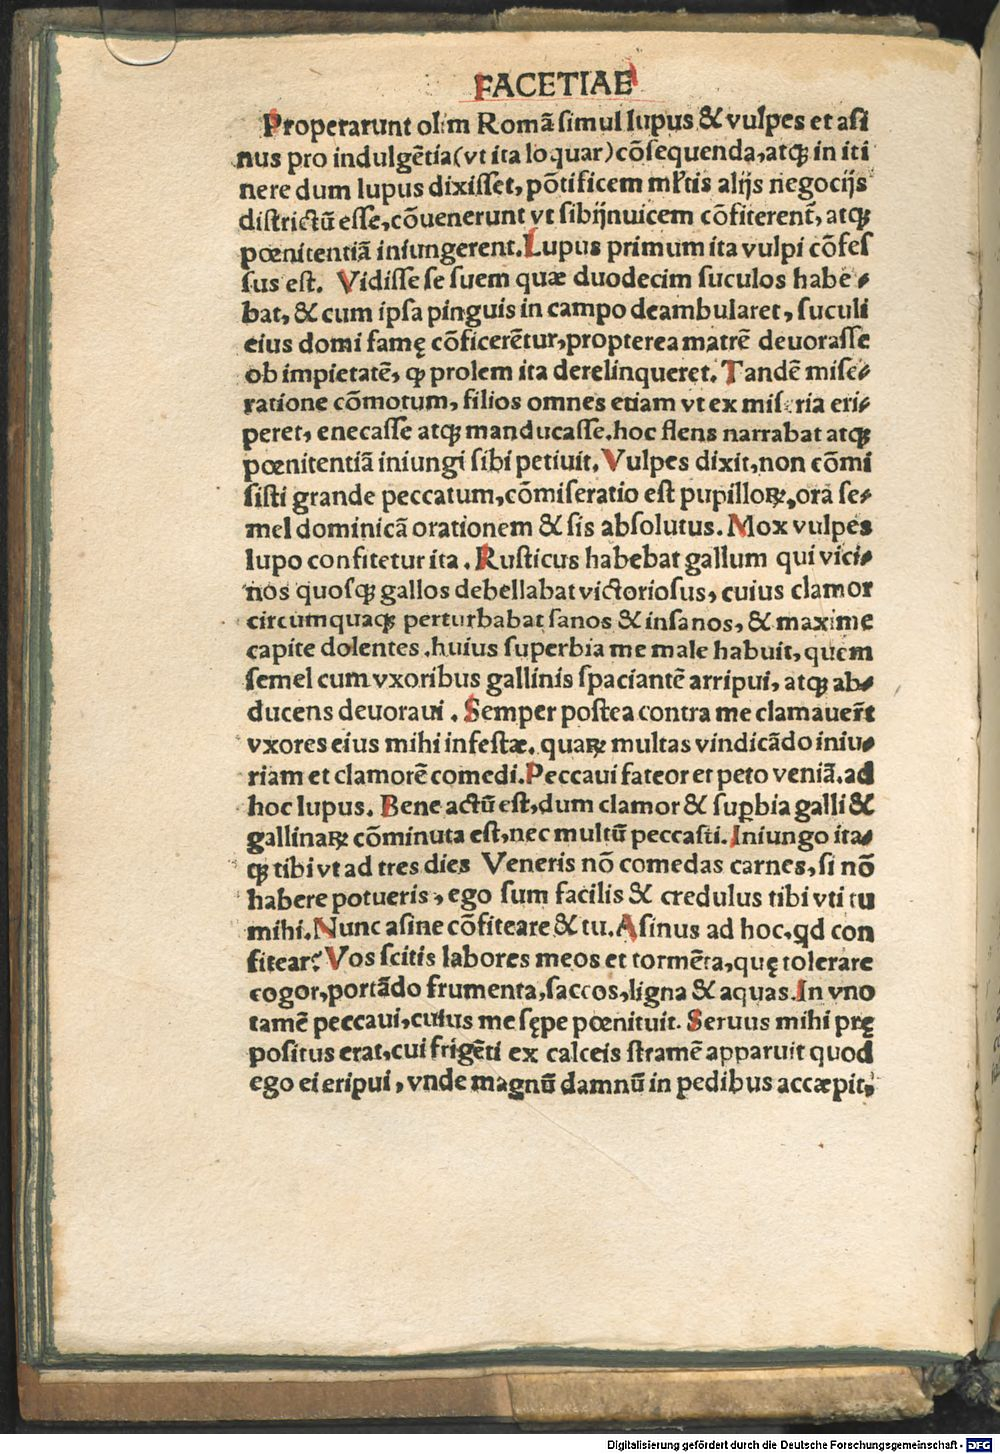 FACETIAE
Properarunt olim Romã simul lupus & vulpes et asi
nus pro indulgẽtia (vt ita loquar) cõsequenda, atqꝫ in iti
nere dum lupus dixisset, põtificem ml̃tis alijs negocijs
districtũ esse, cõuenerunt vt sibijnuicem cõfiterent̃, atqꝫ
pœnitentiã iniungerent. Lupus primum ita vulpi cõfes
sus est. Vidisse se suem quæ duodecim suculos habe⸗
bat, & cum ipsa pinguis in campo deambularet, suculi
eius domi famę cõficerẽtur, propterea matrẽ deuorasse
ob impietatẽ, ꝙ prolem ita derelinqueret. Tandẽ mise⸗
ratione cõmotum, filios omnes etiam vt ex miseria eri⸗
peret, enecasse atqꝫ manducasse. hoc flens narrabat atqꝫ
pœnitentiã iniungi sibi petiuit. Vulpes dixit, non cõmi
sisti grande peccatum, cõmiseratio est pupilloꝝ, ora se⸗
mel dominicã orationem & sis absolutus. Mox vulpes
lupo confitetur ita. Rusticus habebat gallum qui vici⸗
nos quosqꝫ gallos debellabat victoriosus, cuius clamor
circumquaqꝫ perturbabat sanos & insanos, & maxime
capite dolentes. huius superbia me male habuit, quem
semel cum vxoribus gallinis spaciantẽ arripui, atqꝫ ab⸗
ducens deuoraui. Semper postea contra me clamauer̃t
vxores eius mihi infestæ. quaꝝ multas vindicãdo iniu⸗
riam et clamorẽ comedi. Peccaui fateor et peto veniã. ad
hoc lupus. Bene actũ est, dum clamor & suꝑbia galli &
gallinaꝝ cõminuta est, nec multũ peccasti. Iniungo ita⸗
qꝫ tibi vt ad tres dies Veneris nõ comedas carnes, si nõ
habere potueris, ego sum facilis & credulus tibi vti tu
mihi. Nunc asine cõfiteare & tu. Asinus ad hoc, qd con
fitear? Vos scitis labores meos et tormẽta, quę tolerare
cogor, portãdo frumenta, saccos, ligna & aquas. In vno
tamẽ peccaui, cuius me sępe pœnituit. Seruus mihi prę
positus erat, cui frigẽti ex calceis stramẽ apparuit quod
ego ei eripui, vnde magnũ damnũ in pedibus accæpit,
Digitalisierung gefördert durch die Deutsche Forschungsgemeinschaft - DFG